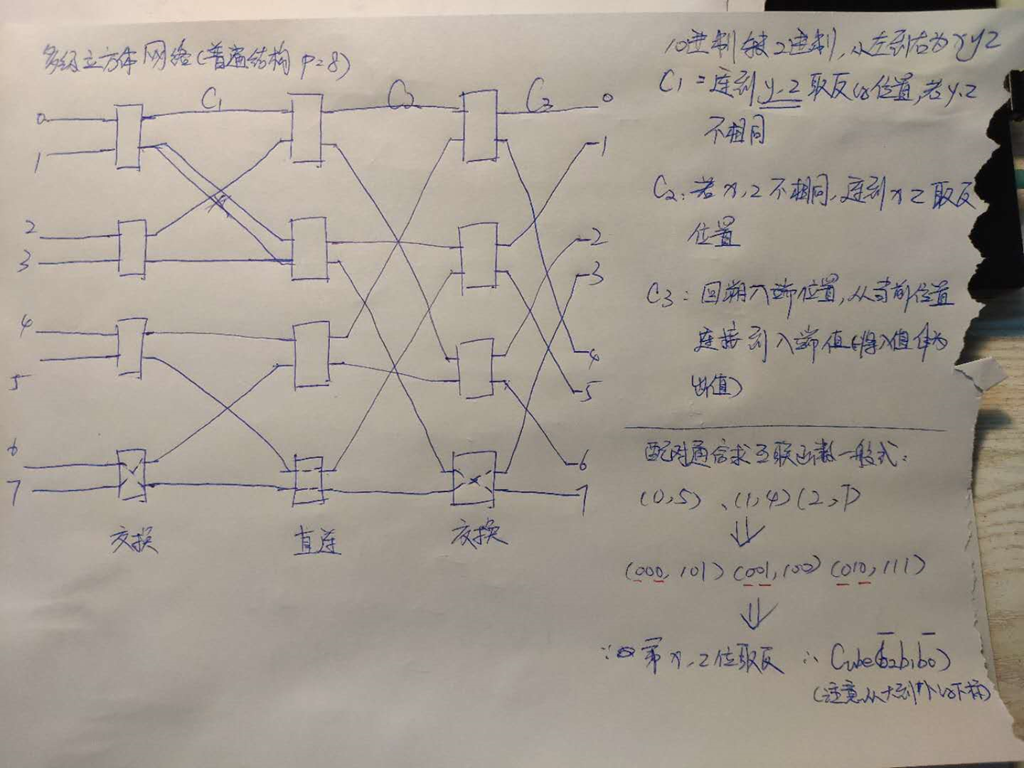 多级立方体网络(普通结构 p=8)
C1 C2 C3
0 0
1 1
2 2
3 3
4 4
5 5
6 6
7 7
交换 直连 交换
10进制转2进制,从左到右为xyz
C1=连到y.z取反的位置,若y.z
不相同
C2:若x,z不相同,连到xz取反
位置
C3:回朔入端位置,从当前位置
连接到入端值(将入值作为
出值)
配对通信求互联函数一般式:
(0,5)、(1,4)(2,7)
(000,101)(001,100)(010,111)
∵第x.z位取反 ∴Cube(b̅2b1b̅0)
(注意从大到小的下标)